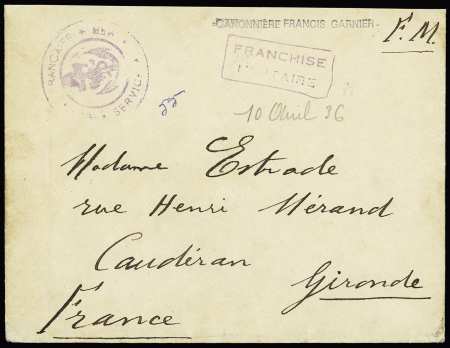 CANONNIÈRE FRANCIS GARNIER
F. M.
FRANCHISE
MILITAIRE
SERVICE
55
10 Avril 36
Madame Estrade
rue Henri Mérand
Caudéran
Gironde
France